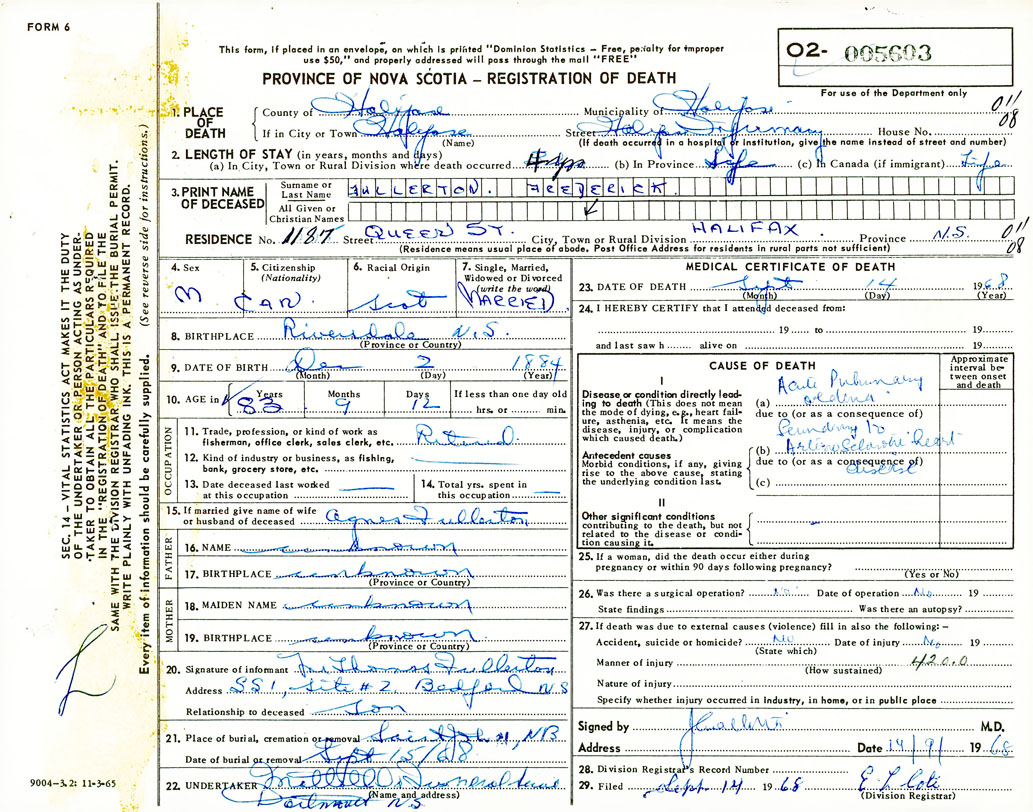 FORM 6
This form, if placed in an envelope, on which is printed "Dominion Statistics — Free, penalty for improper
use $50," and properly addressed will pass through the mail "FREE"
PROVINCE OF NOVA SCOTIA — REGISTRATION OF DEATH
O2- 005603
For use of the Department only
011
08
1. PLACE OF DEATH
County of Halifax Municipality of Halifax
If in City or Town Halifax Street Halifax Infirmary House No.
(Name) (If death occurred in a hospital or institution, give the name instead of street and number)
2. LENGTH OF STAY (in years, months and days)
(a) In City, Town or Rural Division where death occurred (b) In Province Life (c) in Canada (if immigrant) Life
3. PRINT NAME OF DECEASED
Surname or Last Name FULLERTON. FREDERICK.
All Given or Christian Names
RESIDENCE No. 1187 Street QUEEN ST. City, Town or Rural Division HALIFAX Province N.S.
(Residence means usual place of abode. Post Office Address for residents in rural parts not sufficient)
011
08
4. Sex
M
5. Citizenship (Nationality)
CAN.
6. Racial Origin
Scot
7. Single, Married, Widowed or Divorced (write the word)
MARRIED
8. BIRTHPLACE Riversdale N.S.
(Province or Country)
9. DATE OF BIRTH Dec 2 1884
(Month) (Day) (Year)
10. AGE in Years Months Days If less than one day old
83 9 12 hrs. or min.
OCCUPATION
11. Trade, profession, or kind of work as
fisherman, office clerk, sales clerk, etc. Retired.
12. Kind of industry or business, as fishing,
bank, grocery store, etc.
13. Date deceased last worked
at this occupation
14. Total yrs. spent in
this occupation
15. If married give name of wife
or husband of deceased Agnes Fullerton
FATHER
16. NAME unknown
17. BIRTHPLACE unknown
(Province or Country)
MOTHER
18. MAIDEN NAME unknown
19. BIRTHPLACE unknown
(Province or Country)
20. Signature of informant Thomas Fullerton
Address SS1, Site #2 Bedford N S
Relationship to deceased Son
21. Place of burial, cremation or removal Saint John, NB
Date of burial or removal Sept 15/68
22. UNDERTAKER Funeral Home
(Name and address)
Dartmouth N S
MEDICAL CERTIFICATE OF DEATH
23. DATE OF DEATH Sept 14 1968
(Month) (Day) (Year)
24. I HEREBY CERTIFY that I attended deceased from:
19 to 19
and last saw h alive on 19
CAUSE OF DEATH
Approximate interval between onset and death
I
Disease or condition directly leading
to death (This does not mean
the mode of dying, e.g., heart failure,
asthenia, etc. It means the
disease, injury, or complication
which caused death.)
(a) Acute Pulmonary Edema
due to (or as a consequence of)
Secondary to
Antecedent causes
Morbid conditions, if any, giving
rise to the above cause, stating
the underlying condition last.
(b) heart
due to (or as a consequence of)
disease
(c)
II
Other significant conditions
contributing to the death, but not
related to the disease or condition
causing it.
25. If a woman, did the death occur either during
pregnancy or within 90 days following pregnancy?
(Yes or No)
26. Was there a surgical operation? No Date of operation No 19
State findings Was there an autopsy?
27. If death was due to external causes (violence) fill in also the following: —
Accident, suicide or homicide? No Date of injury No 19
(State which)
Manner of injury 420.0
(How sustained)
Nature of injury
Specify whether injury occurred in Industry, in home, or in public place
Signed by M.D.
Address Date 14/9/ 1968
28. Division Registrar's Record Number
29. Filed Sept. 14 1968 E L Cote
(Division Registrar)
SEC. 14 — VITAL STATISTICS ACT MAKES IT THE DUTY
OF THE UNDERTAKER OR PERSON ACTING AS UNDERTAKER
TO OBTAIN ALL THE PARTICULARS REQUIRED
IN THE "REGISTRATION OF DEATH" AND TO FILE THE
SAME WITH THE DIVISION REGISTRAR WHO SHALL ISSUE THE BURIAL PERMIT.
WRITE PLAINLY WITH UNFADING INK. THIS IS A PERMANENT RECORD.
Every item of information should be carefully supplied. (See reverse side for instructions.)
9004-3.2: 11-3-65